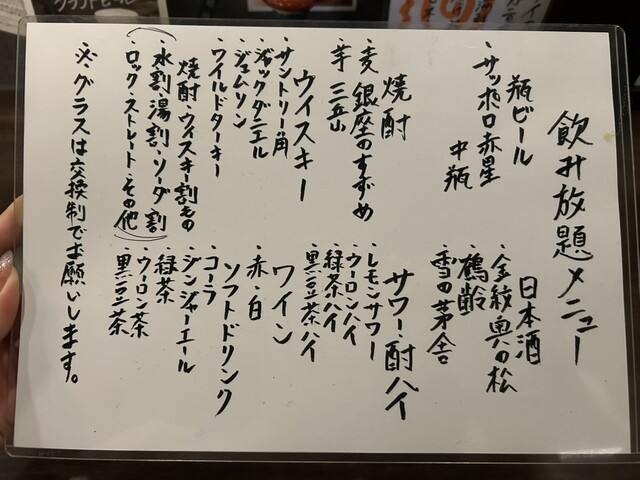 飲み放題メニュー
瓶ビール
・サッポロ赤星
中瓶
焼酎
・麦 銀座のすずめ
・芋 三岳
ウイスキー
・サントリー角
・ジャックダニエル
・ジェムソン
・ワイルドターキー
焼酎・ウイスキー割もの
(水割・湯割・ソーダ割
・ロック・ストレート・その他)
日本酒
・金紋奥の松
・鶴齢
・雪の茅舎
サワー・酎ハイ
・レモンサワー
・ウーロンハイ
・緑茶ハイ
・黒豆茶ハイ
ワイン
・赤・白
ソフトドリンク
・コーラ
・ジンジャーエール
・緑茶
・ウーロン茶
・黒豆茶
※グラスは交換制でお願いします。